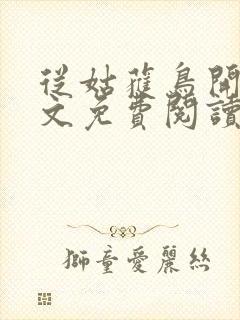 從姑蘓鳥開
文免費閱讀
獅童愛麗絲